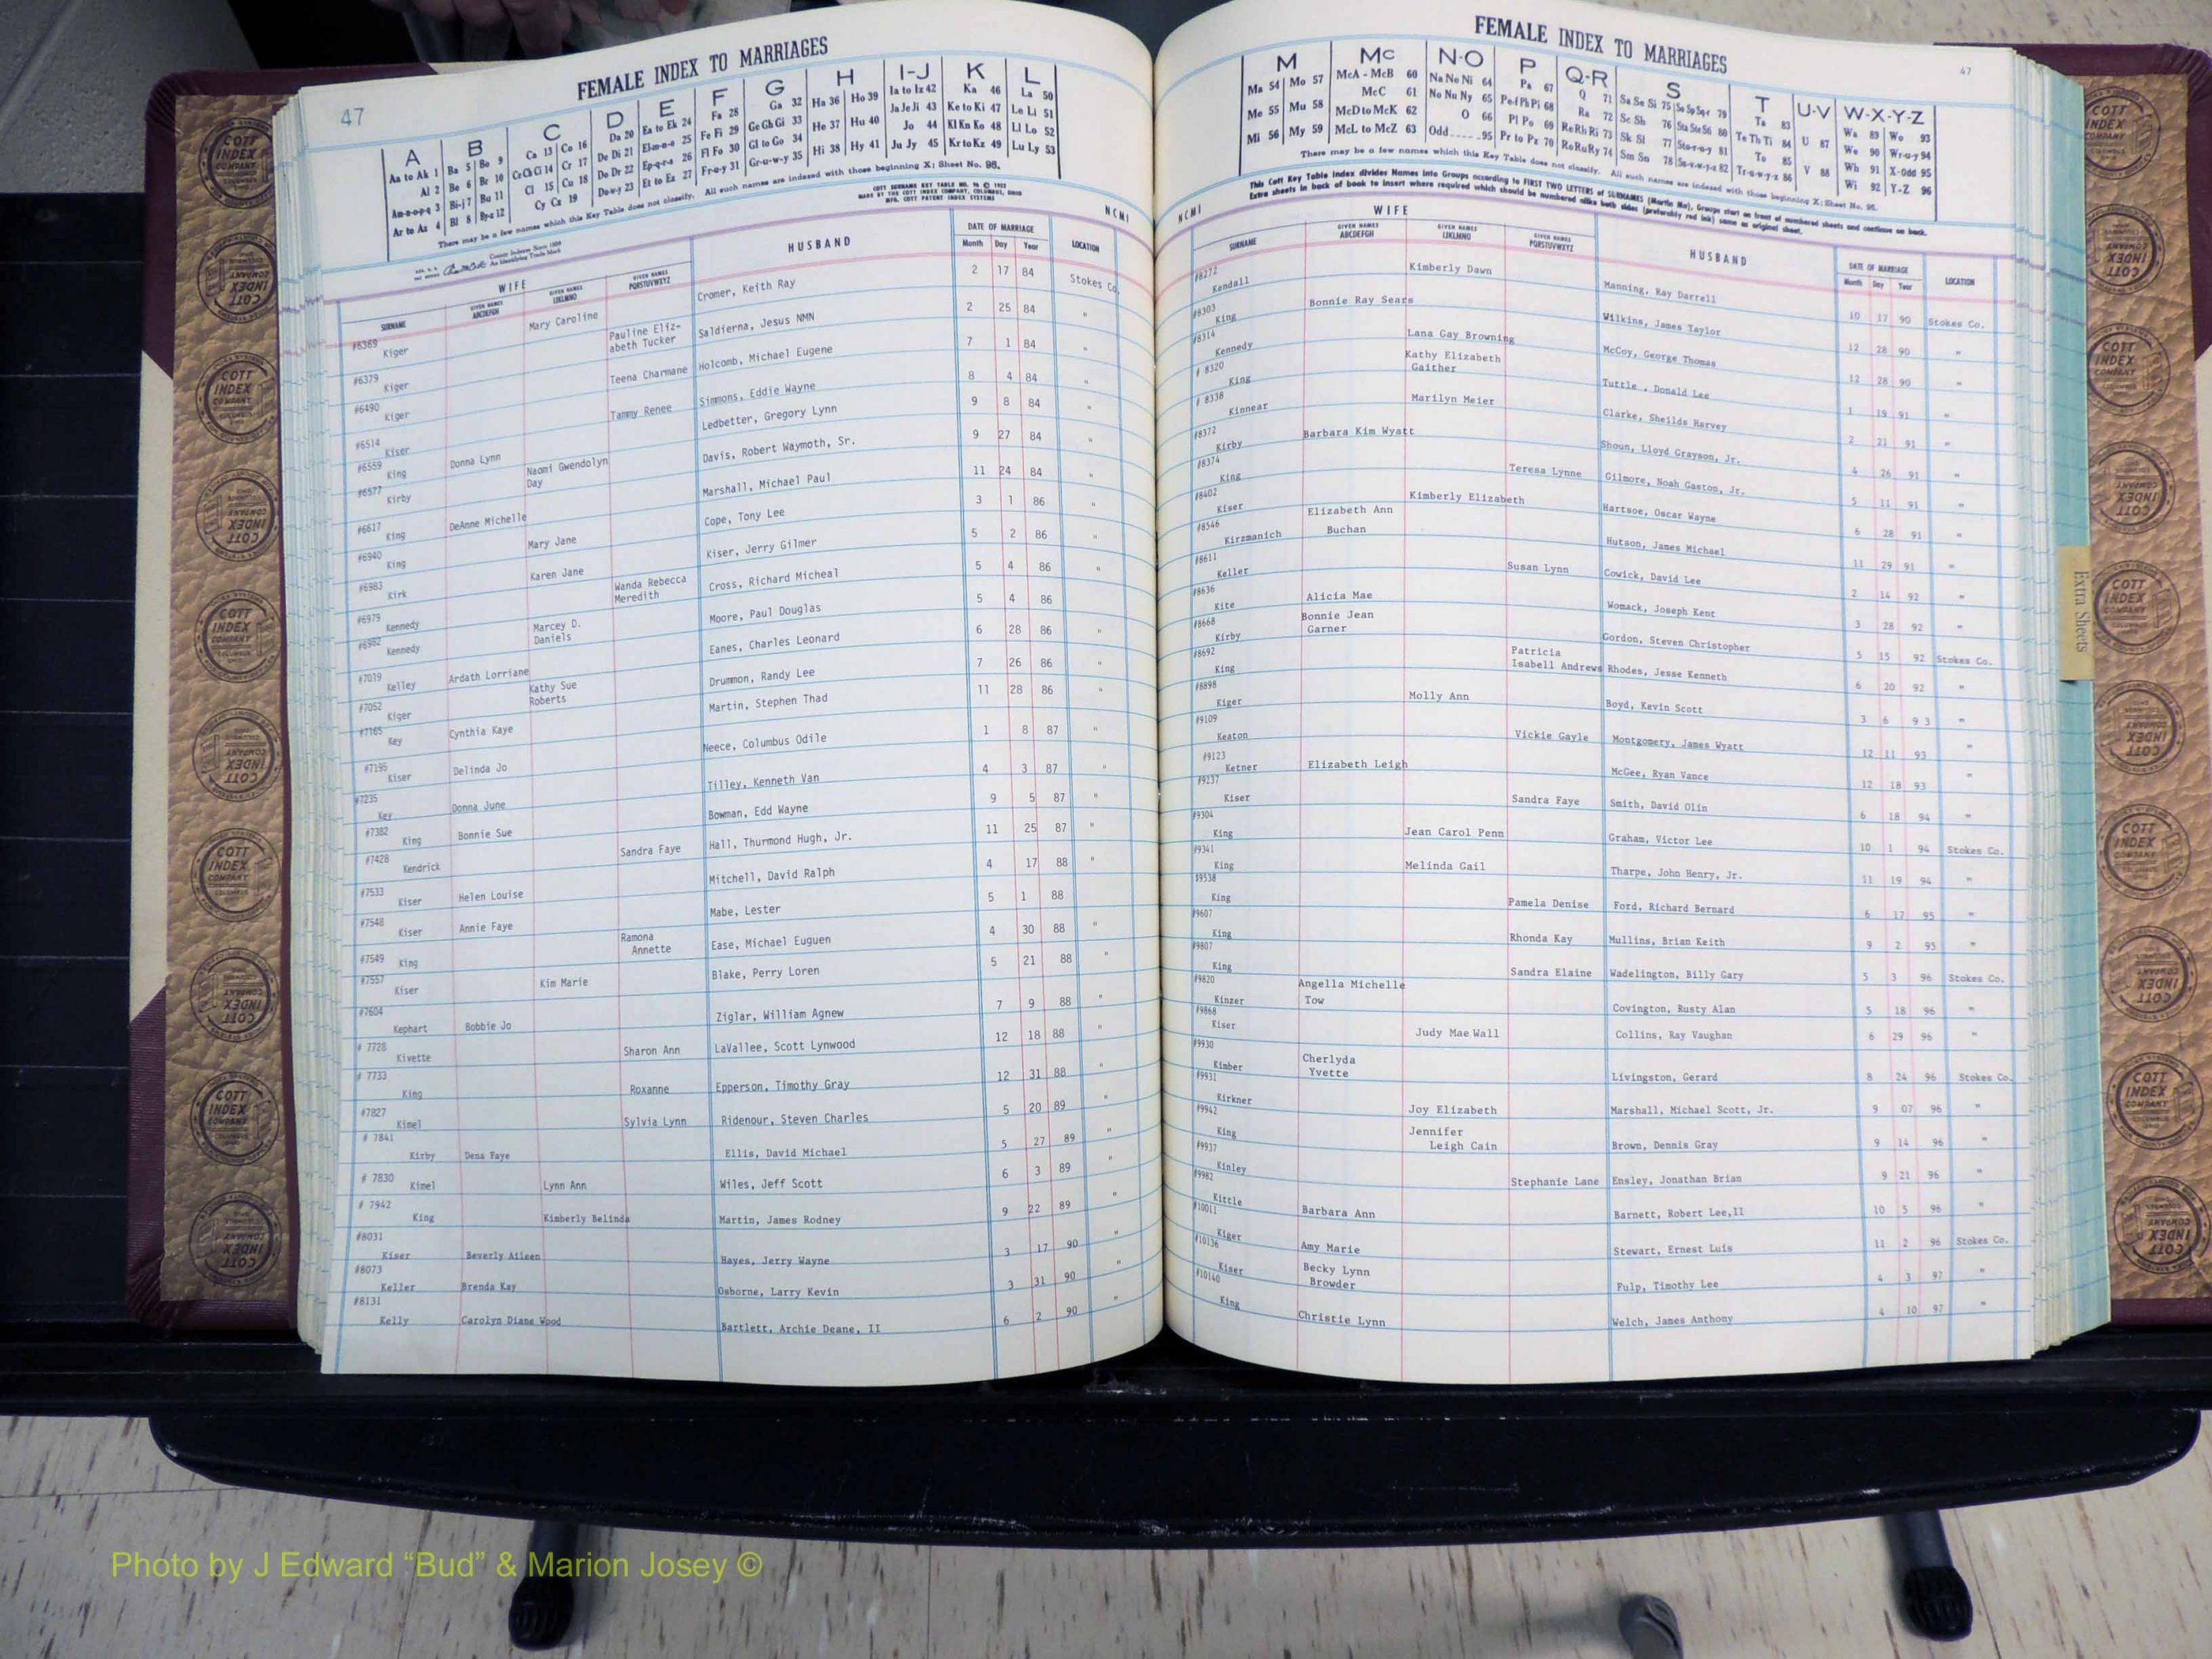 FEMALE INDEX TO MARRIAGES
47
A B C D E F G H I-J K L
Aa to Ak 1 Ba 5 Bo 9 Ca 13 Co 16 Da 20 Ea to Ek 24 Fa 28 Ga 32 Ha 36 Ho 39 Ia to Iz 42 Ka 46 La 50
Al 2 Be 6 Br 10 Ce Ch Ci 14 Cr 17 De Di 21 El-m-n-o 25 Fe Fi 29 Ge Gh Gi 33 He 37 Hu 40 Ja Je Ji 43 Ke to Ki 47 Le Li 51
Am-n-o-p-q 3 Bi-j 7 Bu 11 Cl 15 Cu 18 Do Dr 22 Ep-q-r-s 26 Fl Fo 30 Gl to Go 34 Hi 38 Hy 41 Jo 44 Kl Kn Ko 48 Ll Lo 52
Ar to Az 4 Bl 8 By-z 12 Cy Cz 19 Du-w-y 23 Et to Ez 27 Fr-u-y 31 Gr-u-w-y 35 Ju Jy 45 Kr to Kz 49 Lu Ly 53
There may be a few names which this Key Table does not classify. All such names are indexed with those beginning X; Sheet No. 96.
COTT SURNAME KEY TABLE NO. 96 © 1922
MADE BY THE COTT INDEX COMPANY, COLUMBUS, OHIO
MFG. COTT PATENT INDEX SYSTEMS
NCMI
WIFE HUSBAND DATE OF MARRIAGE LOCATION
SURNAME GIVEN NAMES ABCDEFGH GIVEN NAMES IJKLMNO GIVEN NAMES PQRSTUVWXYZ Month Day Year
#6369 Kiger Mary Caroline Cromer, Keith Ray 2 17 84 Stokes Co.
#6379 Kiger Pauline Eliz-abeth Tucker Saldierna, Jesus NMN 2 25 84 "
#6490 Kiger Teena Charmane Holcomb, Michael Eugene 7 1 84 "
#6514 Kiser Tammy Renee Simmons, Eddie Wayne 8 4 84 "
#6559 King Donna Lynn Ledbetter, Gregory Lynn 9 8 84 "
#6577 Kirby Naomi Gwendolyn Day Davis, Robert Waymoth, Sr. 9 27 84 "
#6617 King DeAnne Michelle Marshall, Michael Paul 11 24 84 "
#6940 King Mary Jane Cope, Tony Lee 3 1 86 "
#6983 Kirk Karen Jane Kiser, Jerry Gilmer 5 2 86 "
#6979 Kennedy Wanda Rebecca Meredith Cross, Richard Micheal 5 4 86 "
#6982 Kennedy Marcey D. Daniels Moore, Paul Douglas 5 4 86
#7019 Kelley Ardath Lorriane Eanes, Charles Leonard 6 28 86 "
#7052 Kiger Kathy Sue Roberts Drummon, Randy Lee 7 26 86 "
#7165 Key Cynthia Kaye Martin, Stephen Thad 11 28 86 "
#7195 Kiser Delinda Jo Neece, Columbus Odile 1 8 87 "
#7235 Key Donna June Tilley, Kenneth Van 4 3 87 "
#7382 King Bonnie Sue Bowman, Edd Wayne 9 5 87 "
#7428 Kendrick Sandra Faye Hall, Thurmond Hugh, Jr. 11 25 87 "
#7533 Kiser Helen Louise Mitchell, David Ralph 4 17 88 "
#7548 Kiser Annie Faye Mabe, Lester 5 1 88
#7549 King Ramona Annette Ease, Michael Euguen 4 30 88 "
#7557 Kiser Kim Marie Blake, Perry Loren 5 21 88 "
#7604 Kephart Bobbie Jo Ziglar, William Agnew 7 9 88 "
# 7728 Kivette Sharon Ann LaVallee, Scott Lynwood 12 18 88 "
# 7733 King Roxanne Epperson, Timothy Gray 12 31 88 "
#7827 Kimel Sylvia Lynn Ridenour, Steven Charles 5 20 89 "
# 7841 Kirby Dena Faye Ellis, David Michael 5 27 89 "
# 7830 Kimel Lynn Ann Wiles, Jeff Scott 6 3 89 "
# 7942 King Kimberly Belinda Martin, James Rodney 9 22 89 "
#8031 Kiser Beverly Aileen Hayes, Jerry Wayne 3 17 90 "
#8073 Keller Brenda Kay Osborne, Larry Kevin 3 31 90 "
#8131 Kelly Carolyn Diane Wood Bartlett, Archie Deane, II 6 2 90 "
FEMALE INDEX TO MARRIAGES
47
M Mc N-O P Q-R S T U-V W-X-Y-Z
Ma 54 Mo 57 McA - McB 60 Na Ne Ni 64 Pa 67 Q 71 Sa Se Si 75 So Sp Sq-r 79 Ta 83 Wa 89 Wo 93
Me 55 Mu 58 McC 61 No Nu Ny 65 Pe-f Ph Pi 68 Ra 72 Sc Sh 76 Sta Ste Sti 80 Te Th Ti 84 U 87 We 90 Wr-u-y 94
Mi 56 My 59 McD to McK 62 O 66 Pl Po 69 Re Rh Ri 73 Sk Sl 77 Sto-r-u-y 81 To 85 V 88 Wh 91 X-Odd 95
McL to McZ 63 Odd 95 Pr to Pz 70 Ro Ru Ry 74 Sm Sn 78 Su-v-w-y-z 82 Tr-u-w-y-z 86 Wi 92 Y-Z 96
There may be a few names which this Key Table does not classify. All such names are indexed with those beginning X; Sheet No. 96.
This Cott Key Table Index divides Names into Groups according to FIRST TWO LETTERS of SURNAMES (Martin Ma), Groups start on front of numbered sheets and continue on back.
Extra sheets in back of book to insert where required which should be numbered alike both sides (preferably red ink) same as original sheet.
NCMI
WIFE HUSBAND DATE OF MARRIAGE LOCATION
SURNAME GIVEN NAMES ABCDEFGH GIVEN NAMES IJKLMNO GIVEN NAMES PQRSTUVWXYZ Month Day Year
#8272 Kendall Kimberly Dawn Manning, Ray Darrell 10 17 90 Stokes Co.
#8303 King Bonnie Ray Sears Wilkins, James Taylor 12 28 90 "
#8314 Kennedy Lana Gay Browning McCoy, George Thomas 12 28 90 "
# 8320 King Kathy Elizabeth Gaither Tuttle , Donald Lee 1 19 91 "
# 8338 Kinnear Marilyn Meier Clarke, Sheilds Harvey 2 21 91 "
#8372 Kirby Barbara Kim Wyatt Shoun, Lloyd Grayson, Jr. 4 26 91 "
#8374 King Teresa Lynne Gilmore, Noah Gaston, Jr. 5 11 91 "
#8402 Kiser Kimberly Elizabeth Hartsoe, Oscar Wayne 6 28 91 "
#8546 Kirzmanich Elizabeth Ann Buchan Hutson, James Michael 11 29 91 "
#8611 Keller Susan Lynn Cowick, David Lee 2 14 92 "
#8636 Kite Alicia Mae Womack, Joseph Kent 3 28 92 "
#8668 Kirby Bonnie Jean Garner Gordon, Steven Christopher 5 15 92 Stokes Co.
#8692 King Patricia Isabell Andrews Rhodes, Jesse Kenneth 6 20 92 "
#8898 Kiger Molly Ann Boyd, Kevin Scott 3 6 93 "
#9109 Keaton Vickie Gayle Montgomery, James Wyatt 12 11 93 "
#9123 Ketner Elizabeth Leigh McGee, Ryan Vance 12 18 93 "
#9237 Kiser Sandra Faye Smith, David Olin 6 18 94 "
#9304 King Jean Carol Penn Graham, Victor Lee 10 1 94 Stokes Co.
#9341 King Melinda Gail Tharpe, John Henry, Jr. 11 19 94 "
#9538 King Pamela Denise Ford, Richard Bernard 6 17 95 "
#9607 King Rhonda Kay Mullins, Brian Keith 9 2 95 "
#9807 King Sandra Elaine Wadelington, Billy Gary 5 3 96 Stokes Co.
#9820 Kinzer Angella Michelle Tow Covington, Rusty Alan 5 18 96 "
#9868 Kiser Judy Mae Wall Collins, Ray Vaughan 6 29 96 "
#9930 Kimber Cherlyda Yvette Livingston, Gerard 8 24 96 Stokes Co.
#9931 Kirkner Joy Elizabeth Marshall, Michael Scott, Jr. 9 07 96 "
#9942 King Jennifer Leigh Cain Brown, Dennis Gray 9 14 96 "
#9937 Kinley Stephanie Lane Ensley, Jonathan Brian 9 21 96 "
#9982 Kittle Barbara Ann Barnett, Robert Lee,II 10 5 96 "
#10011 Kiger Amy Marie Stewart, Ernest Luis 11 2 96 Stokes Co.
#10136 Kiser Becky Lynn Browder Fulp, Timothy Lee 4 3 97 "
#10140 King Christie Lynn Welch, James Anthony 4 10 97 "
Extra Sheets
COTT INDEX COMPANY COLUMBUS OHIO
Photo by J Edward “Bud” & Marion Josey ©